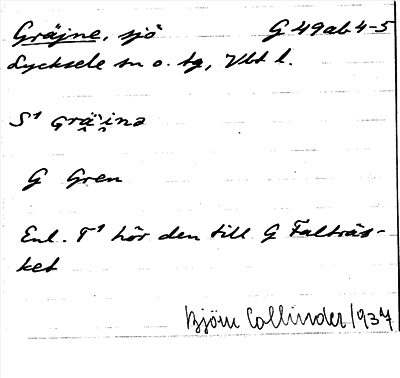 Gräjne, sjö G 49ab 4-5
Lycksele sn o. tg, Vlt l.
S¹ grä̂inə
G Gren
Enl. T¹ hör den till G Falträs-
ket
Björn Collinder 1937